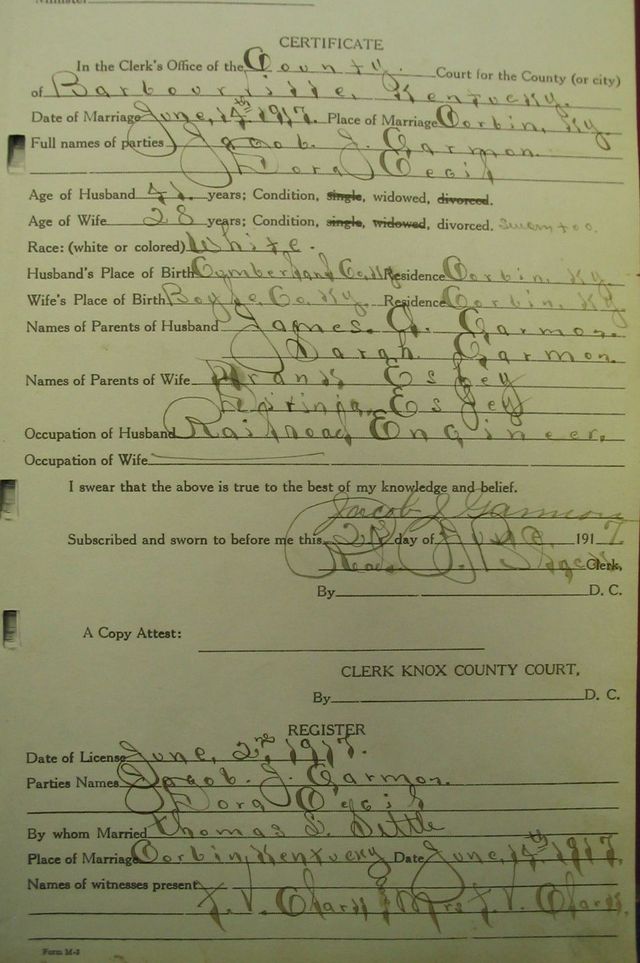 CERTIFICATE
In the Clerk's Office of the County. Court for the County (or city)
of Barbourville, Kentucky.
Date of Marriage June, 14th 1917. Place of Marriage Corbin, Ky.
Full names of parties Jacob. J. Garmon.
Dora
Age of Husband 41 years; Condition, single, widowed, divorced.
Age of Wife 28 years; Condition, single, widowed, divorced.
Race: (white or colored) White.
Husband's Place of Birth Cumberland Co. Ky. Residence Corbin, Ky.
Wife's Place of Birth Boyle Co. Ky. Residence Corbin, Ky
Names of Parents of Husband James. Garmon.
Sarah Garmon.
Names of Parents of Wife Frank
Occupation of Husband Railroad Engineer,
Occupation of Wife
I swear that the above is true to the best of my knowledge and belief.
Jacob J Garmon
Subscribed and sworn to before me this 2 day of June 1917
Read Clerk,
By D. C.
A Copy Attest:
CLERK KNOX COUNTY COURT,
By D. C.
REGISTER
Date of License June, 2nd, 1917.
Parties Names Jacob. J. Garmon.
Dora
By whom Married Thomas
Place of Marriage Corbin, Kentucky Date June, 14th 1917,
Names of witnesses present
J. V. & Mrs J. V.
Form M-2